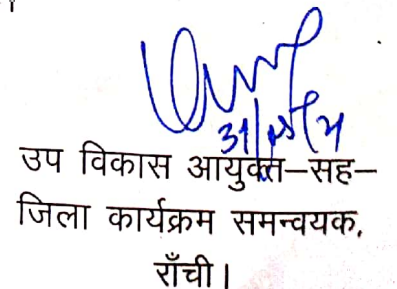 उप विकास आयुक्त–सह–
जिला कार्यक्रम समन्वयक,
राँची।